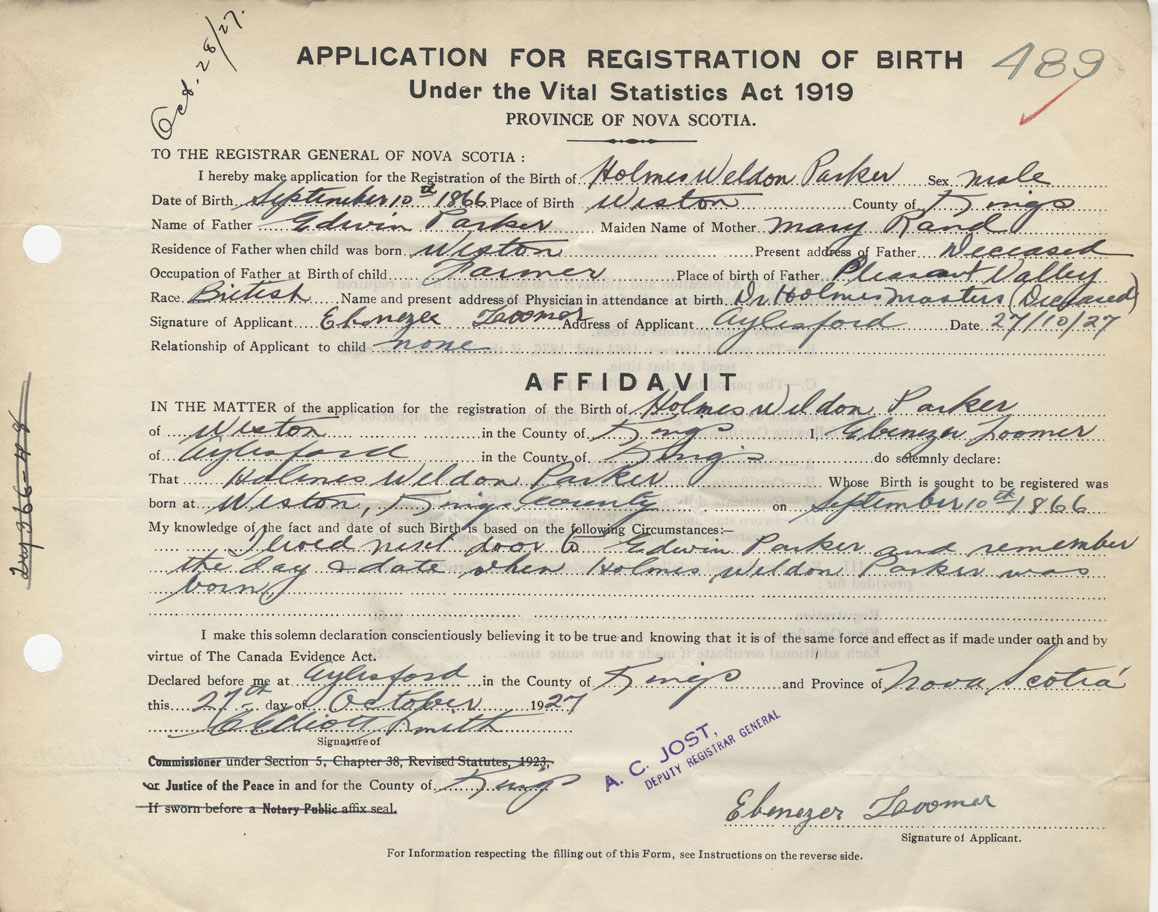 Oct. 28/27.
APPLICATION FOR REGISTRATION OF BIRTH
489
Under the Vital Statistics Act 1919
PROVINCE OF NOVA SCOTIA.
TO THE REGISTRAR GENERAL OF NOVA SCOTIA :
I hereby make application for the Registration of the Birth of Holmes Weldon Parker Sex male
Date of Birth September 10th 1866 Place of Birth Weston County of Kings
Name of Father Edwin Parker Maiden Name of Mother Mary Rand
Residence of Father when child was born Weston Present address of Father Deceased
Occupation of Father at Birth of child Farmer Place of birth of Father Pleasant Valley
Race British Name and present address of Physician in attendance at birth Dr Holmes Masters (Deceased)
Signature of Applicant Ebenezer Loomer Address of Applicant Aylesford Date 27/10/27
Relationship of Applicant to child none
AFFIDAVIT
IN THE MATTER of the application for the registration of the Birth of Holmes Weldon Parker
of Weston in the County of Kings I, Ebenezer Loomer
of Aylesford in the County of King's do solemnly declare:
That Holmes Weldon Parker Whose Birth is sought to be registered was
born at Weston, Kings County on September 10th 1866
My knowledge of the fact and date of such Birth is based on the following Circumstances:—
I lived next door to Edwin Parker and remember
the day & date when Holmes Weldon Parker was
born.
I make this solemn declaration conscientiously believing it to be true and knowing that it is of the same force and effect as if made under oath and by
virtue of The Canada Evidence Act.
Declared before me at Aylesford in the County of Kings and Province of Nova Scotia
this 27th day of October 1927
Elliott Smith
Signature of
Commissioner under Section 5, Chapter 38, Revised Statutes, 1923,
or Justice of the Peace in and for the County of Kings
If sworn before a Notary Public affix seal.
A. C. JOST,
DEPUTY REGISTRAR GENERAL
Ebenezer Loomer
Signature of Applicant.
For Information respecting the filling out of this Form, see Instructions on the reverse side.